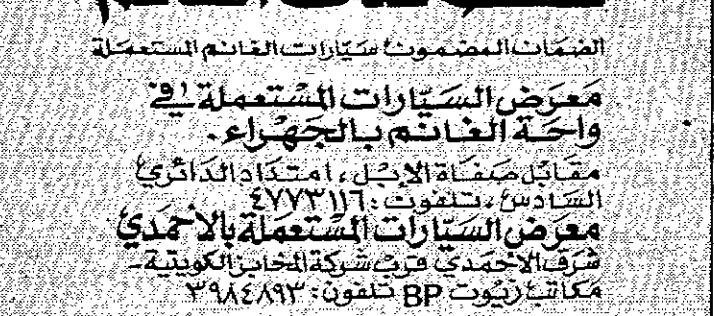 الضمان المضمون! سيّارات الغانم المستعملة
معرض السيّارات المستعملة في
واحة الغانم بالجهراء.
مقابل صفاة الإبل، امتداد الدائري
السادس، تلفون: ٤٧٧٣١١٦
معرض السيّارات المستعملة بالأحمدي
شرق الأحمدي قرب شركة المخابز الكويتية -
مكاتب زيوت BP تلفون: ٣٩٨٤٨٩٣